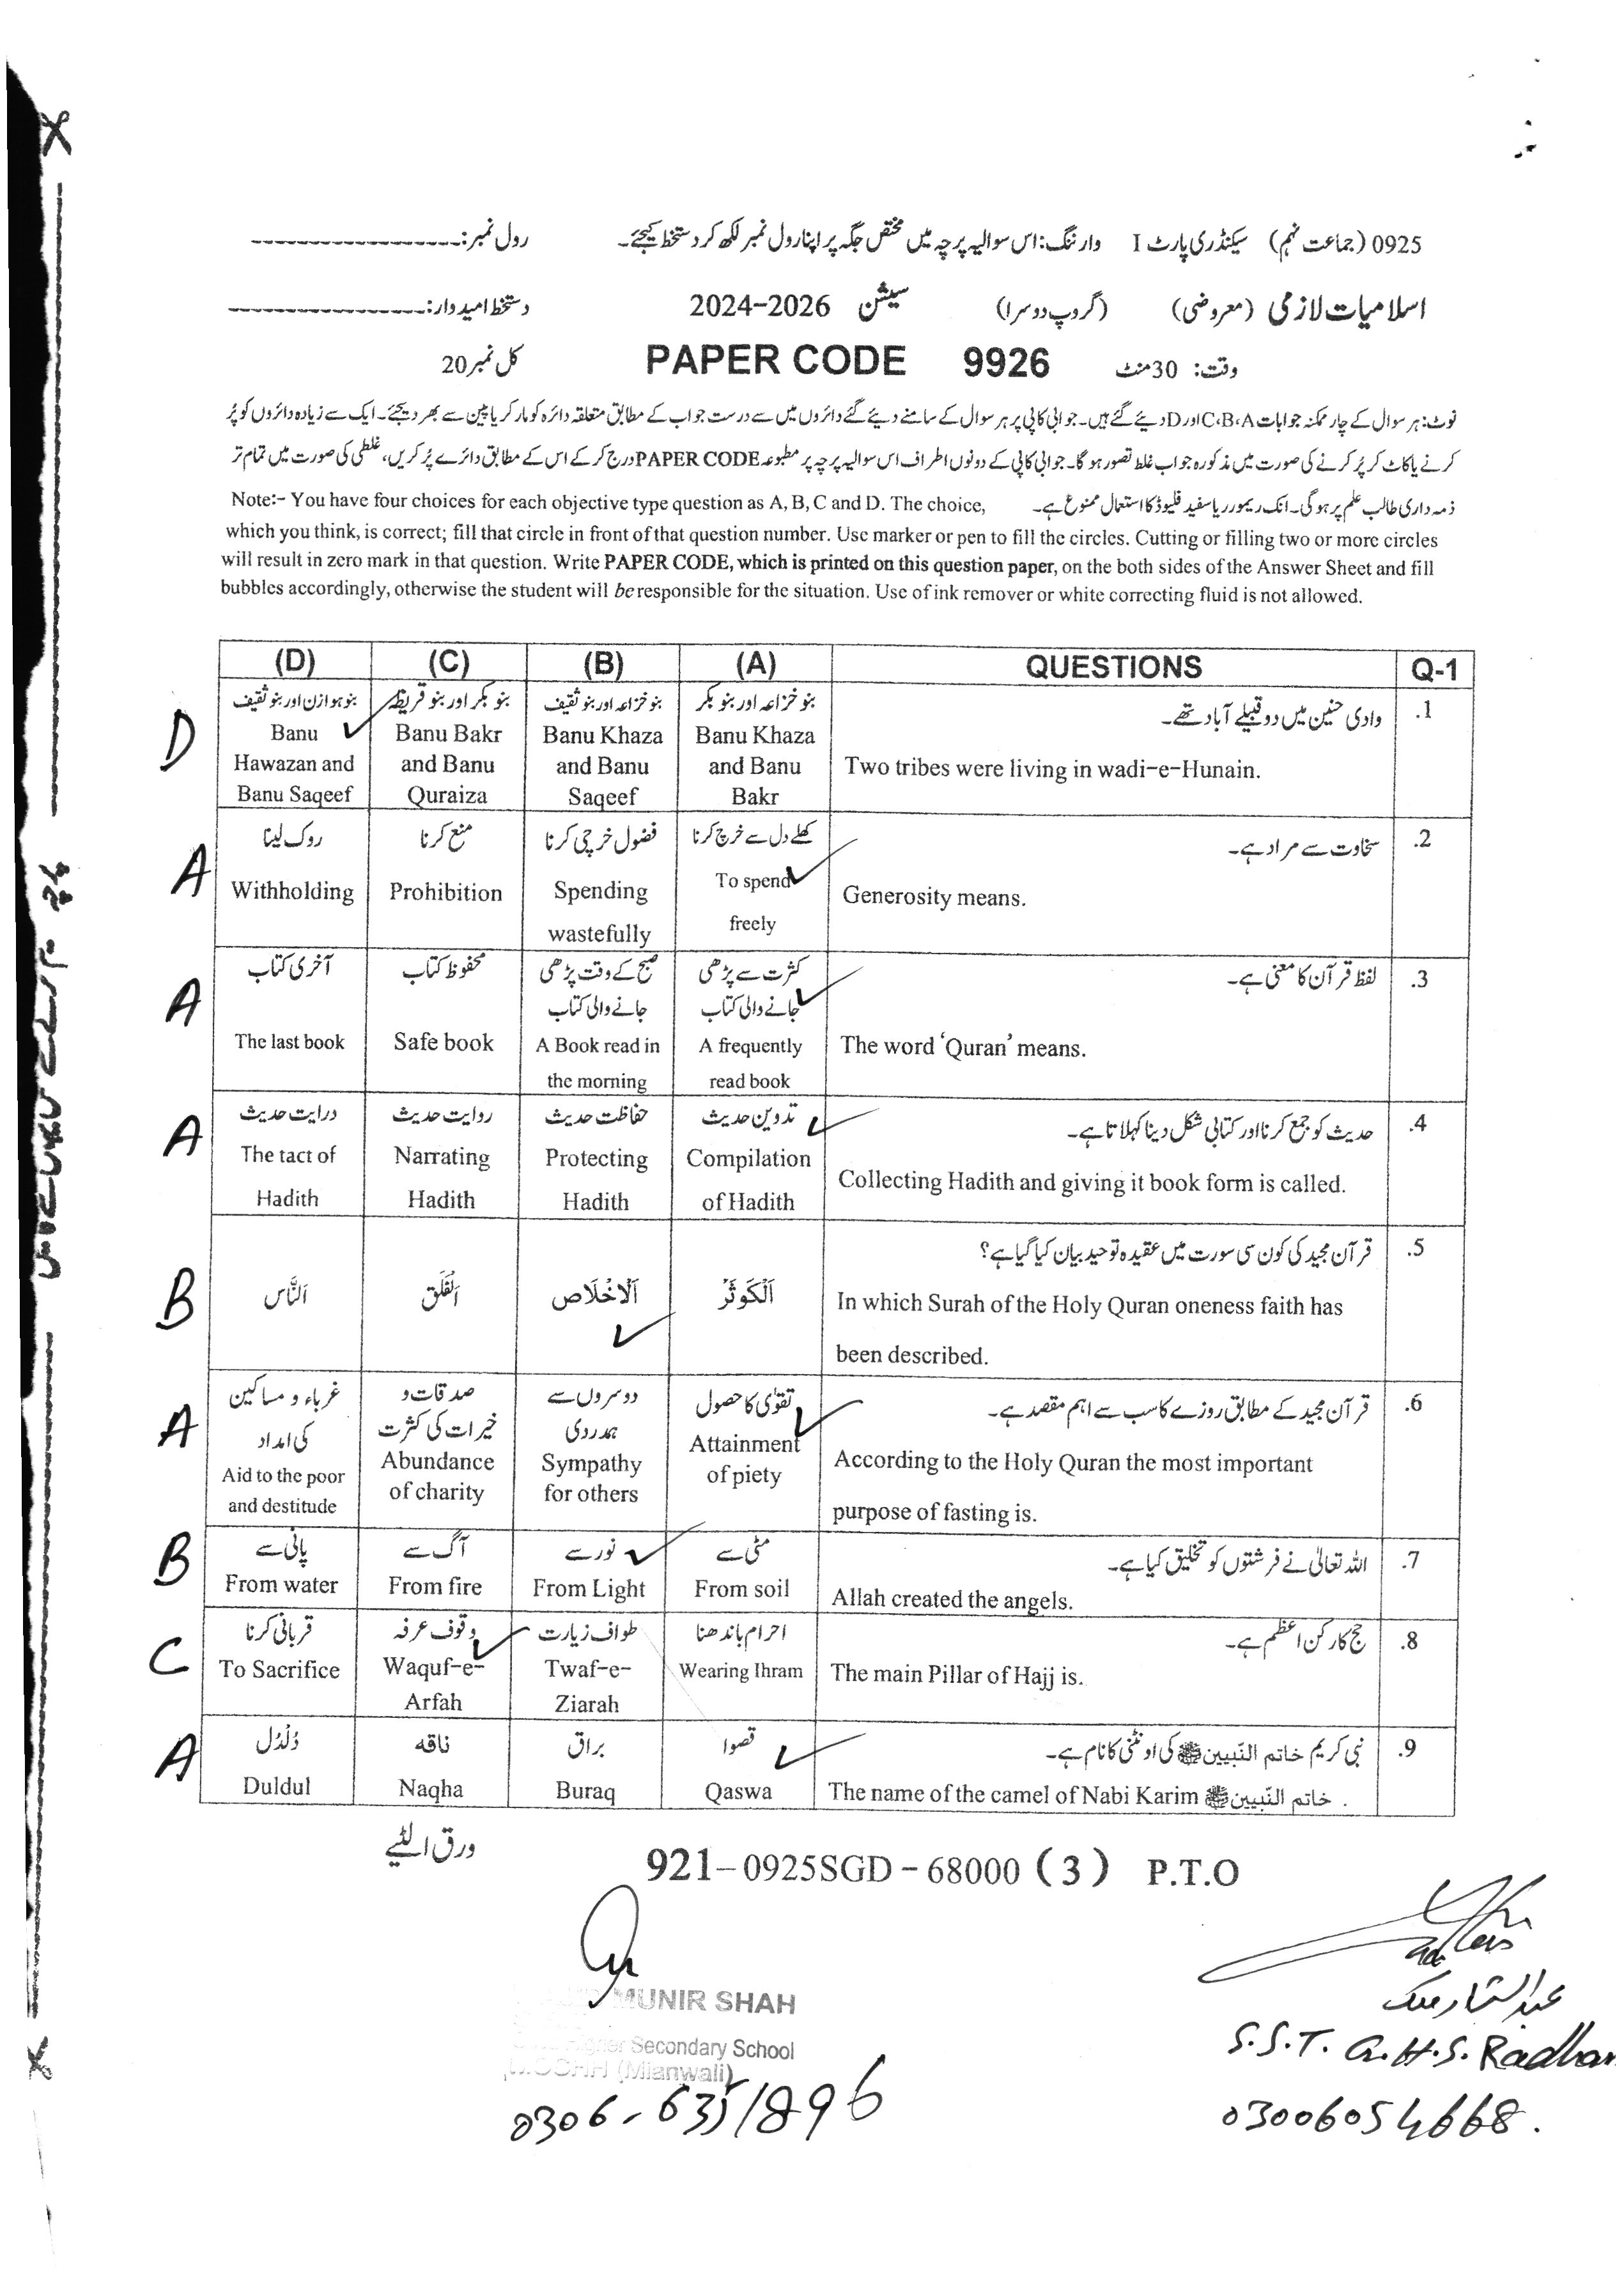 0925 (جماعت نہم) سیکنڈری پارٹ I وارننگ: اس سوالیہ پرچہ میں مختص جگہ پر اپنا رول نمبر لکھ کر دستخط کیجئے۔ رول نمبر:
اسلامیات لازمی (معروضی) (گروپ دوسرا) سیشن 2024-2026 دستخط امیدوار:
وقت: 30 منٹ PAPER CODE 9926 کل نمبر 20
نوٹ: ہر سوال کے چار ممکنہ جوابات C،B،A اور D دیئے گئے ہیں۔ جوابی کاپی پر ہر سوال کے سامنے دیئے گئے دائروں میں سے درست جواب کے مطابق متعلقہ دائرہ کو مارکر یا پین سے بھر دیجئے۔ ایک سے زیادہ دائروں کو پُر
کرنے یا کاٹ کر پُر کرنے کی صورت میں مذکورہ جواب غلط تصور ہو گا۔ جوابی کاپی کے دونوں اطراف اس سوالیہ پرچہ پر مطبوعہ PAPER CODE درج کر کے اس کے مطابق دائرے پُر کریں، غلطی کی صورت میں تمام تر
ذمہ داری طالب علم پر ہوگی۔ انک ریمور ریا سفید فلیوڈ کا استعمال ممنوع ہے۔
Note:- You have four choices for each objective type question as A, B, C and D. The choice,
which you think, is correct; fill that circle in front of that question number. Use marker or pen to fill the circles. Cutting or filling two or more circles
will result in zero mark in that question. Write PAPER CODE, which is printed on this question paper, on the both sides of the Answer Sheet and fill
bubbles accordingly, otherwise the student will be responsible for the situation. Use of ink remover or white correcting fluid is not allowed.
(D) (C) (B) (A) QUESTIONS Q-1
.1 وادی حنین میں دو قبیلے آباد تھے۔
Two tribes were living in wadi-e-Hunain.
بنو خزاعہ اور بنو بکر
Banu Khaza
and Banu
Bakr
بنو خزاعہ اور بنو ثقیف
Banu Khaza
and Banu
Saqeef
بنو بکر اور بنو قریظہ
Banu Bakr
and Banu
Quraiza
بنو ہوازن اور بنو ثقیف
Banu
Hawazan and
Banu Saqeef
D
.2 سخاوت سے مراد ہے۔
Generosity means.
کھلے دل سے خرچ کرنا
To spend
freely
فضول خرچی کرنا
Spending
wastefully
منع کرنا
Prohibition
روک لینا
Withholding
A
.3 لفظ قرآن کا معنی ہے۔
The word ‘Quran’ means.
کثرت سے پڑھی
جانے والی کتاب
A frequently
read book
صبح کے وقت پڑھی
جانے والی کتاب
A Book read in
the morning
محفوظ کتاب
Safe book
آخری کتاب
The last book
A
.4 حدیث کو جمع کرنا اور کتابی شکل دینا کہلاتا ہے۔
Collecting Hadith and giving it book form is called.
تدوین حدیث
Compilation
of Hadith
حفاظت حدیث
Protecting
Hadith
روایت حدیث
Narrating
Hadith
درایت حدیث
The tact of
Hadith
A
.5 قرآن مجید کی کون سی سورت میں عقیدہ توحید بیان کیا گیا ہے؟
In which Surah of the Holy Quran oneness faith has
been described.
اَلْکَوثَرْ
اَلْاِخْلَاص
اَلْفَلَق
اَلنَّاس
B
.6 قرآن مجید کے مطابق روزے کا سب سے اہم مقصد ہے۔
According to the Holy Quran the most important
purpose of fasting is.
تقوٰی کا حصول
Attainment
of piety
دوسروں سے
ہمدردی
Sympathy
for others
صدقات و
خیرات کی کثرت
Abundance
of charity
غرباء و مساکین
کی امداد
Aid to the poor
and destitude
A
.7 اللہ تعالیٰ نے فرشتوں کو تخلیق کیا ہے۔
Allah created the angels.
مٹی سے
From soil
نور سے
From Light
آگ سے
From fire
پانی سے
From water
B
.8 حج کا رکن اعظم ہے۔
The main Pillar of Hajj is.
احرام باندھنا
Wearing Ihram
طواف زیارت
Twaf-e-
Ziarah
وقوف عرفہ
Waquf-e-
Arfah
قربانی کرنا
To Sacrifice
C
.9 نبی کریم خاتم النّبیین ﷺ کی اونٹنی کا نام ہے۔
The name of the camel of Nabi Karim خاتم النّبیین ﷺ .
قصوا
Qaswa
براق
Buraq
ناقہ
Naqha
دُلْدُل
Duldul
A
ورق الٹیے
921-0925SGD-68000 (3) P.T.O
MUNIR SHAH
Secondary School
(Mianwali)
عبدالستار ملک
S.S.T. G.H.S. Radhan
03006054668.